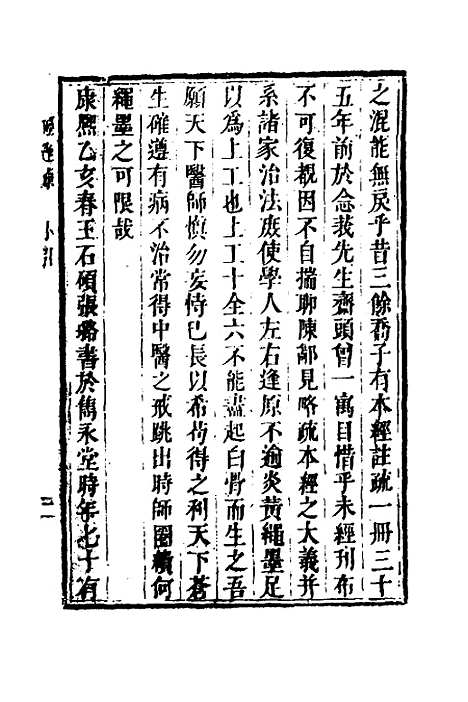 之混能無戾乎昔三餘喬子有本經註疏一冊三十
五年前於念莪先生齋頭曾一寓目惜乎未經刊布
不可復覩因不自揣聊陳鄙見略疏本經之大義并
系諸家治法庶使學人左右逢原不逾炎黃繩墨足
以爲上工也上工十全六不能盡起白骨而生之吾
願天下醫師慎勿妄恃己長以希苟得之利天下蒼
生確遵有病不治常得中醫之戒跳出時師圈繢何
繩墨之可限哉
康熙乙亥春王石頑張璐書於雋永堂時年七十有
小引